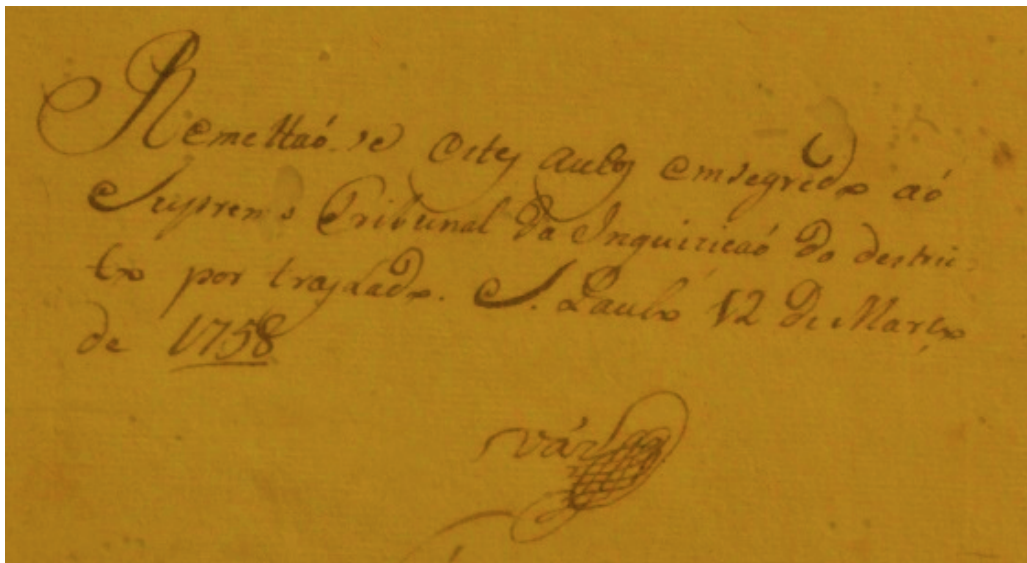 Remettaó se estes autos emsegredo aó
Supremo Tribunal da Inquiricaó do destri-
to por traslado. S. Paulo 12 de Março
de 1758